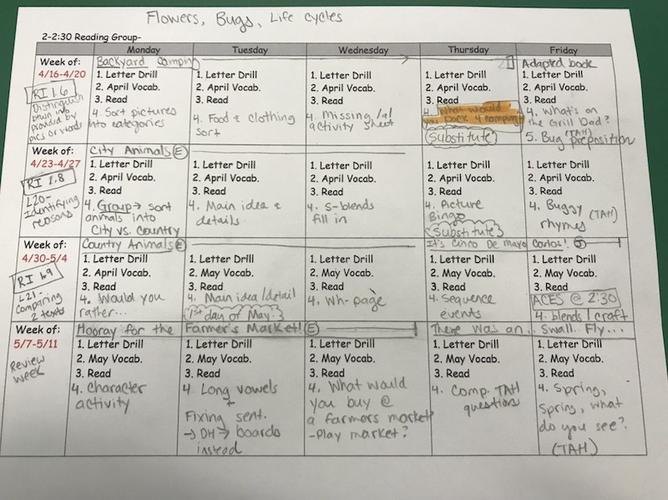 Flowers, Bugs, Life cycles
2-2:30 Reading Group-
Monday Tuesday Wednesday Thursday Friday
Week of:
4/16-4/20
RI 1.6
Distinguish
provided by
pics or words
Backyard Camping
1. Letter Drill
2. April Vocab.
3. Read
4. Sort pictures
into categories
1. Letter Drill
2. April Vocab.
3. Read
4. Food & clothing
sort
1. Letter Drill
2. April Vocab.
3. Read
4. Missing /a/
activity sheet
1. Letter Drill
2. April Vocab.
3. Read
4. What would
you pack 4 camping
(Substitute)
Adapted book
1. Letter Drill
2. April Vocab.
3. Read
4. What's on
the Grill Dad?
(TAH)
5. Bug preposition
Week of:
4/23-4/27
RI 1.8
L20-
Identifying
reasons
City Animals (E)
1. Letter Drill
2. April Vocab.
3. Read
4. Group → sort
animals into
City vs. Country
1. Letter Drill
2. April Vocab.
3. Read
4. Main idea &
details
1. Letter Drill
2. April Vocab.
3. Read
4. S-blends
fill in
1. Letter Drill
2. April Vocab.
3. Read
4. Picture
Bingo
(Substitute)
1. Letter Drill
2. April Vocab.
3. Read
4. Buggy (TAH)
rhymes
Week of:
4/30-5/4
RI 1.9
L21-
Comparing
2 texts
Country Animals (E)
1. Letter Drill
2. April Vocab.
3. Read
4. Would you
rather...
1. Letter Drill
2. May Vocab.
3. Read
4. Main idea/detail
1st day of May
1. Letter Drill
2. May Vocab.
3. Read
4. Wh-page
It's Cinco De mayo Carlos!
1. Letter Drill
2. May Vocab.
3. Read
4. Sequence
events
1. Letter Drill
2. May Vocab.
3. Read
ACES @ 2:30
4. blends/craft
Week of:
5/7-5/11
Review
week
Hooray for the Farmer's Market! (E)
1. Letter Drill
2. May Vocab.
3. Read
4. Character
activity
1. Letter Drill
2. May Vocab.
3. Read
4. Long vowels
+
Fixing sent.
→ DH → boards
instead
1. Letter Drill
2. May Vocab.
3. Read
4. What would
you buy @
a farmers market
-Play market?
There was an... Small Fly...
1. Letter Drill
2. May Vocab.
3. Read
4. Comp. TAH
questions
1. Letter Drill
2. May Vocab.
3. Read
4. Spring,
Spring, what
do you see?
(TAH)